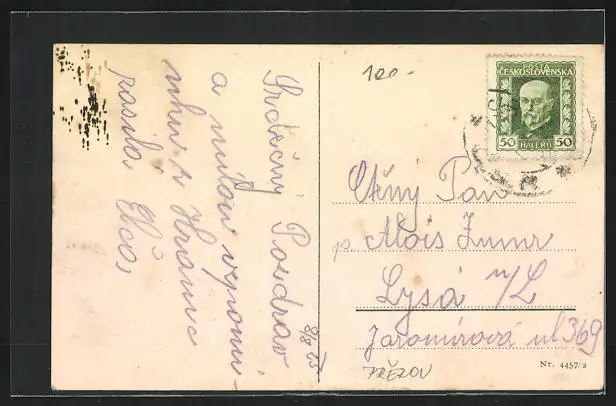 Srdečný Pozdrav
a milou vzpomí-
nku z Hranic
posílá Eliča
8/8 25
120-
POŠTA
ČESKOSLOVENSKÁ
50 HALÉŘŮ 50
Ctěný Pán
p. Alois Zumr
Lysá n/L
Jaromírová ul 369
Nr. 4457/2